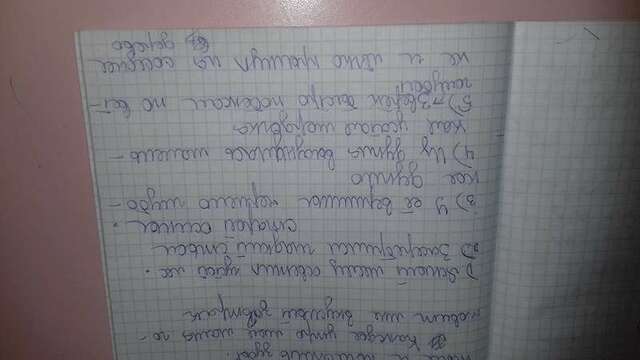 зубы.
Каждое утро моя мама го-
товит мне вкусный завтрак
1) Ясный месяц осветил густой лес.
2) Засеребрился гладкий ствол
старой осины.
3) У её вершины чернело глубо-
кое дупло
4) Из дупла высунулась малень-
кая усатая мордочка
5) Зверёк быстро побежал по вет-
голубой
ке и прыгнул на соседнее
дерево